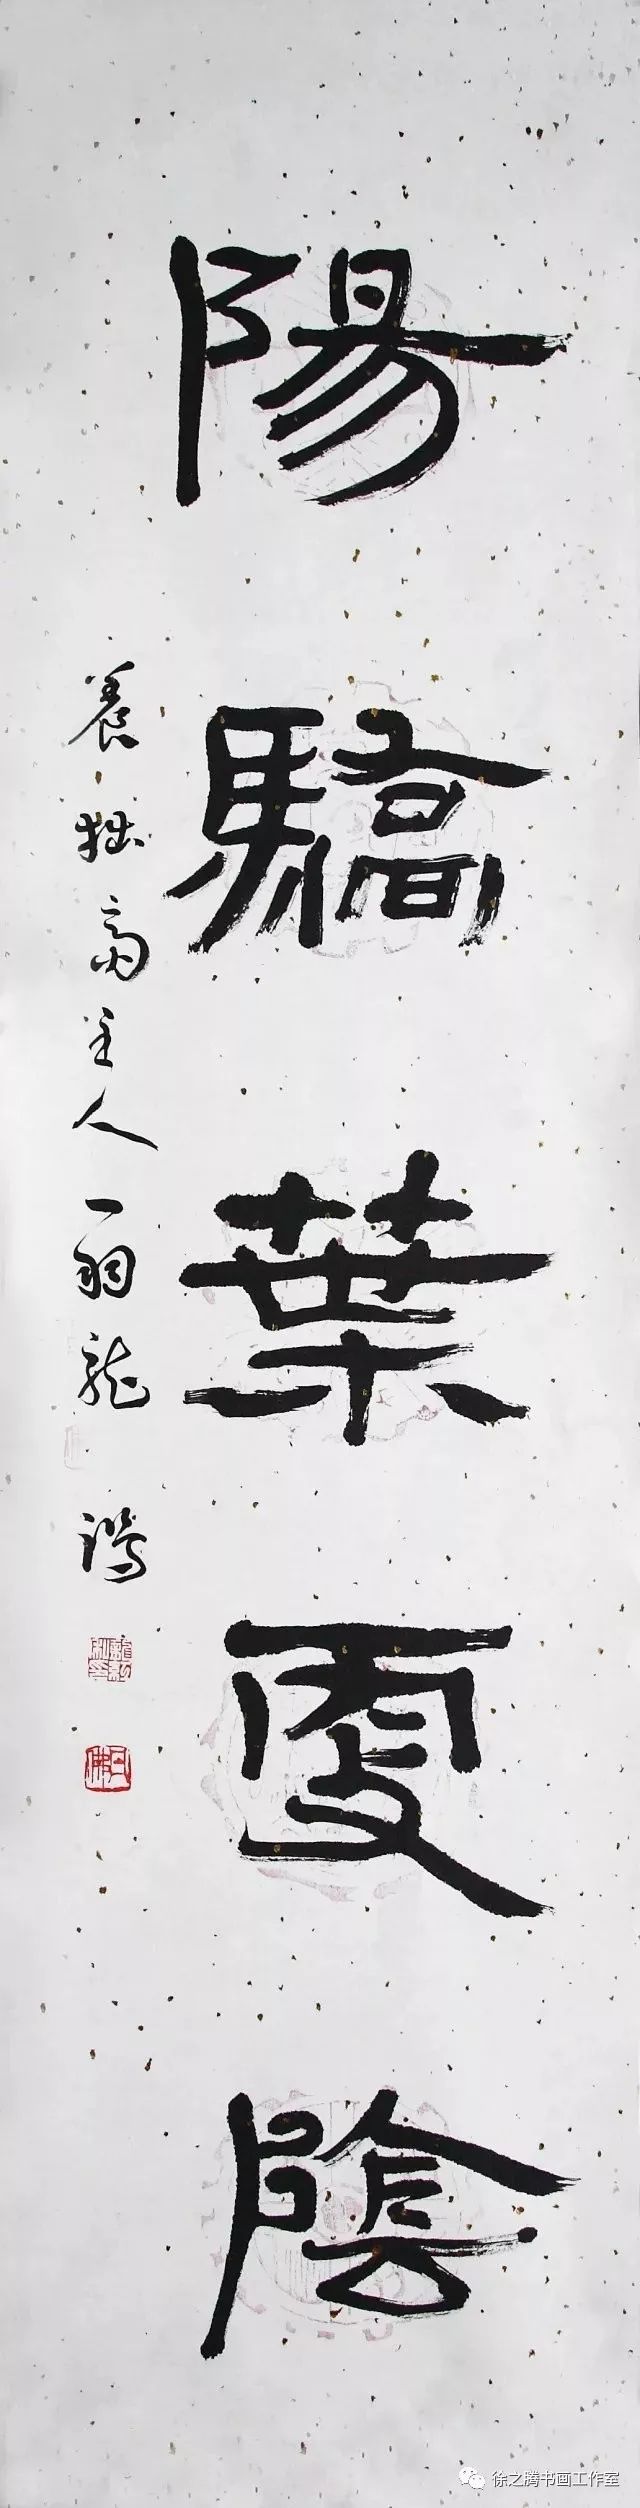 陽驕葉更陰
養拙齋主人一羽龍
徐之腾书画工作室